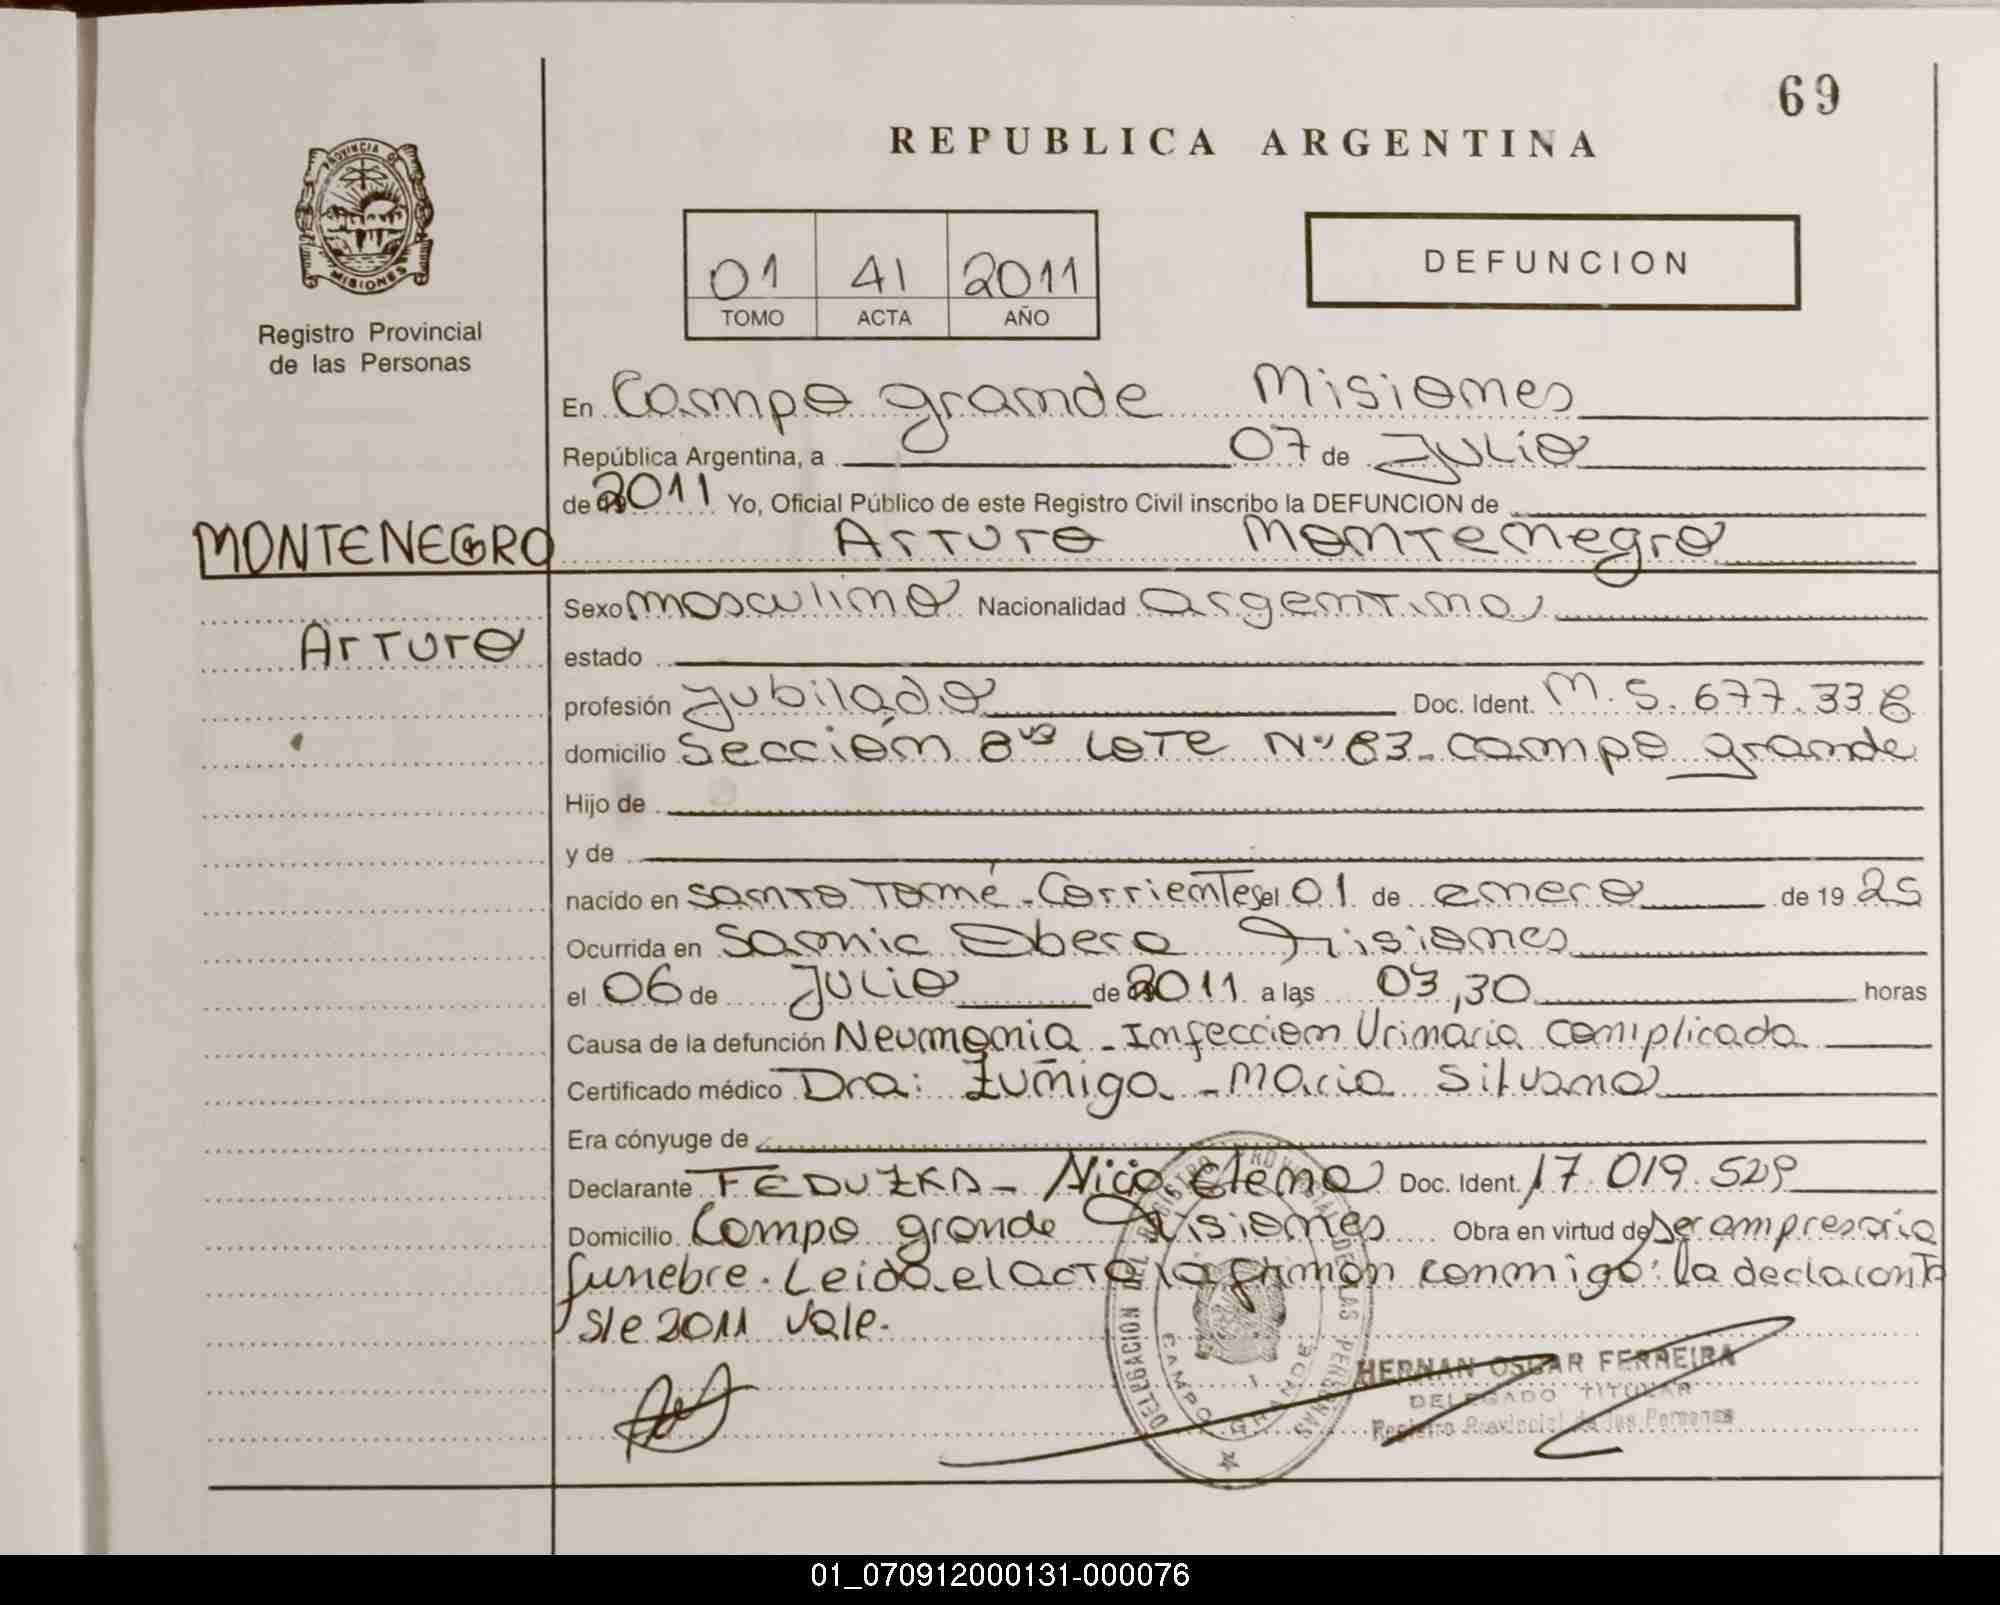 69
REPUBLICA ARGENTINA
PROVINCIA DE
MISIONES
Registro Provincial
de las Personas
01 41 2011
TOMO ACTA AÑO
DEFUNCION
En Campo grande Misiones
República Argentina, a 07 de Julio
de 2011 Yo, Oficial Público de este Registro Civil inscribo la DEFUNCION de
MONTENEGRO Arturo Montenegro
Sexo masculino Nacionalidad argentino
Arturo
estado
profesión Jubilado Doc. Ident. M. 5.677.336
domicilio Sección 8va Lote Nº 83- campo grande
Hijo de
y de
nacido en Santo Tomé - Corrientes el 01 de enero de 19 25
Ocurrida en Samic Obera Misiones
el 06 de Julio de 2011 a las 03,30 horas
Causa de la defunción Neumonia - Infeccion Urinaria complicada
Certificado médico Dra: Zuñiga - Maria Silvana
Era cónyuge de
Declarante FEDUZKA - Elena Doc. Ident. 17.019.529
Domicilio Campo grande Misiones Obra en virtud de ser empresaria
funebre. Leido el acta la firman conmigo: la declarante
S/e 2011 vale.
DELEGACION DEL REGISTRO PROVINCIAL DE LAS PERSONAS
CAMPO GRANDE
HERNAN OSCAR FERREIRA
DELEGADO TITULAR
Registro Provincial de las Personas
01_070912000131-000076